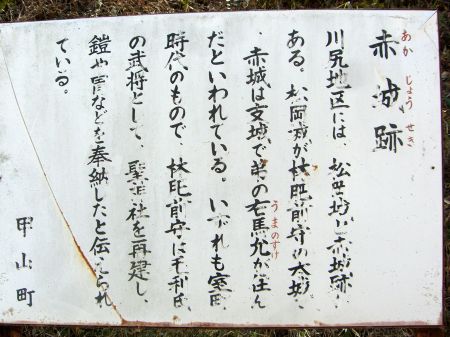 赤城跡
あか じょう せき
川尻地区には、松岡城と赤城跡が
ある。松岡城が杕肥前守の本城、
赤城は支城で弟の右馬允が住ん
うまのすけ
だといわれている。いずれも室町
時代のもので、杕肥前守は毛利氏
の武将として、聖神社を再建し、
鎧や冑などを奉納したと伝えられ
ている。
甲山町